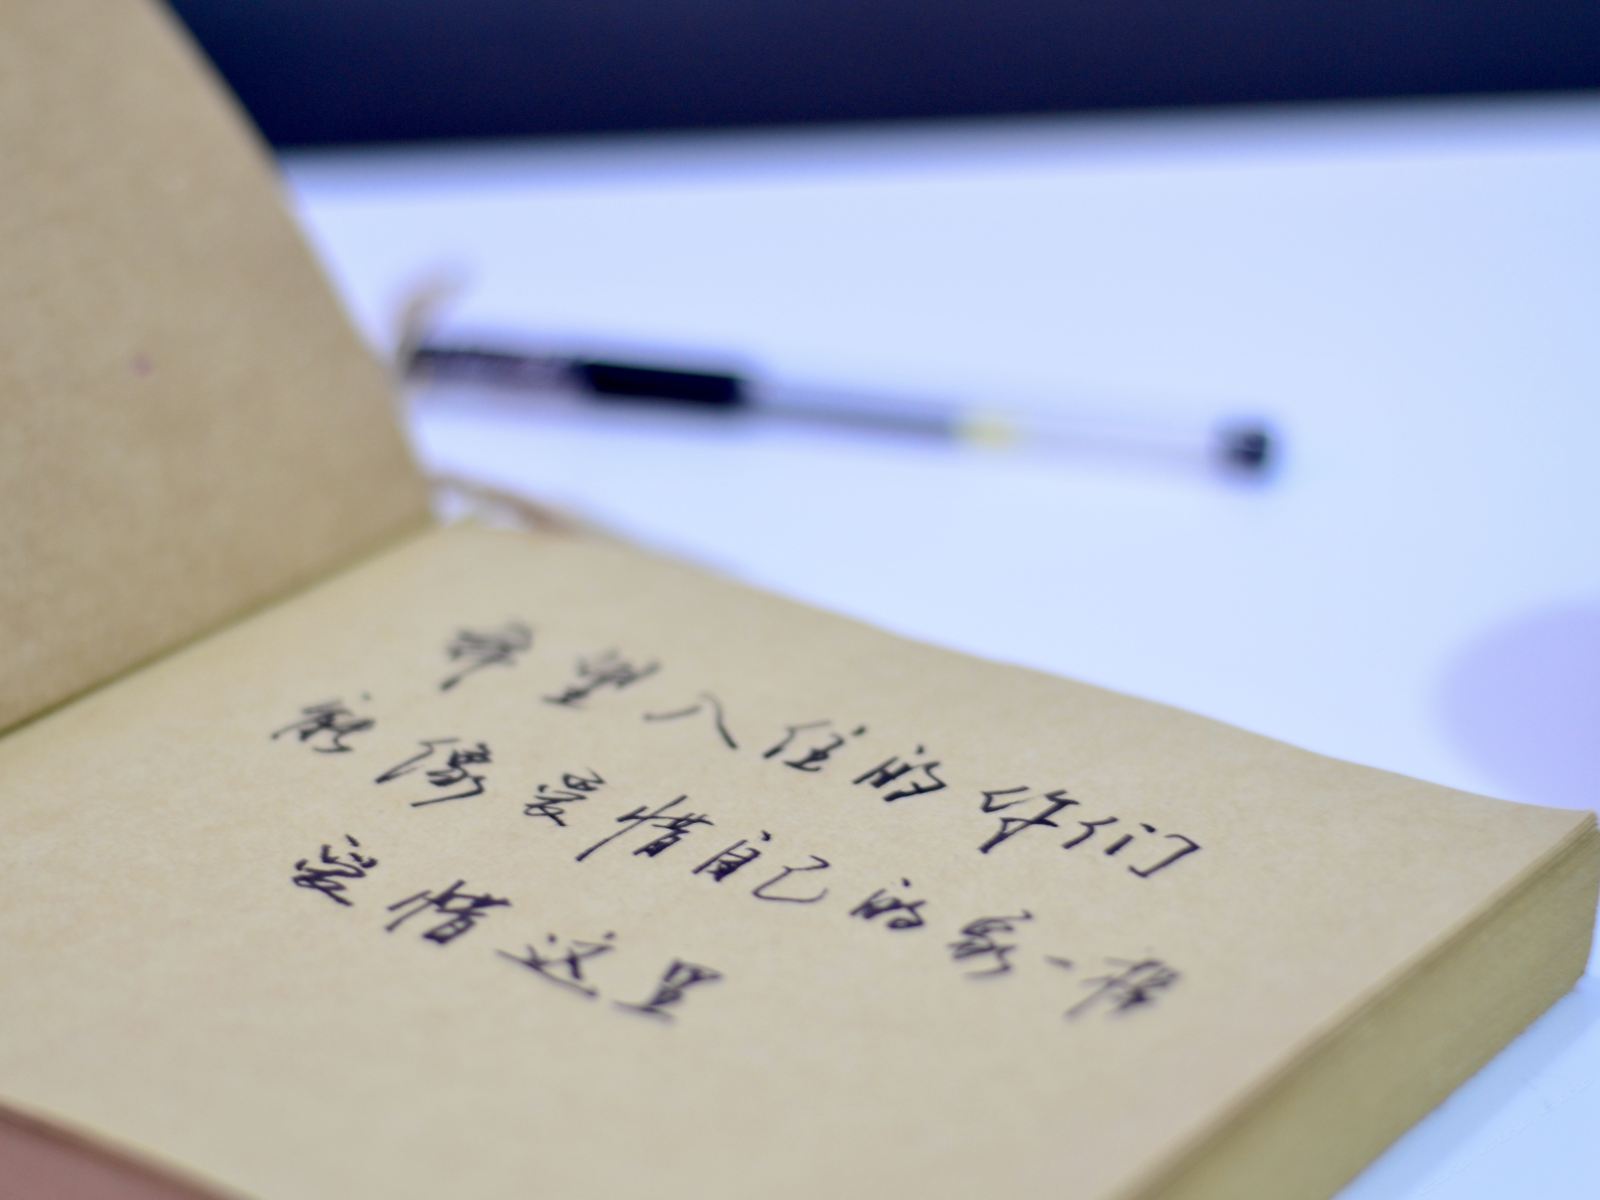 希望入住的你们
能像爱惜自己的家一样
爱惜这里